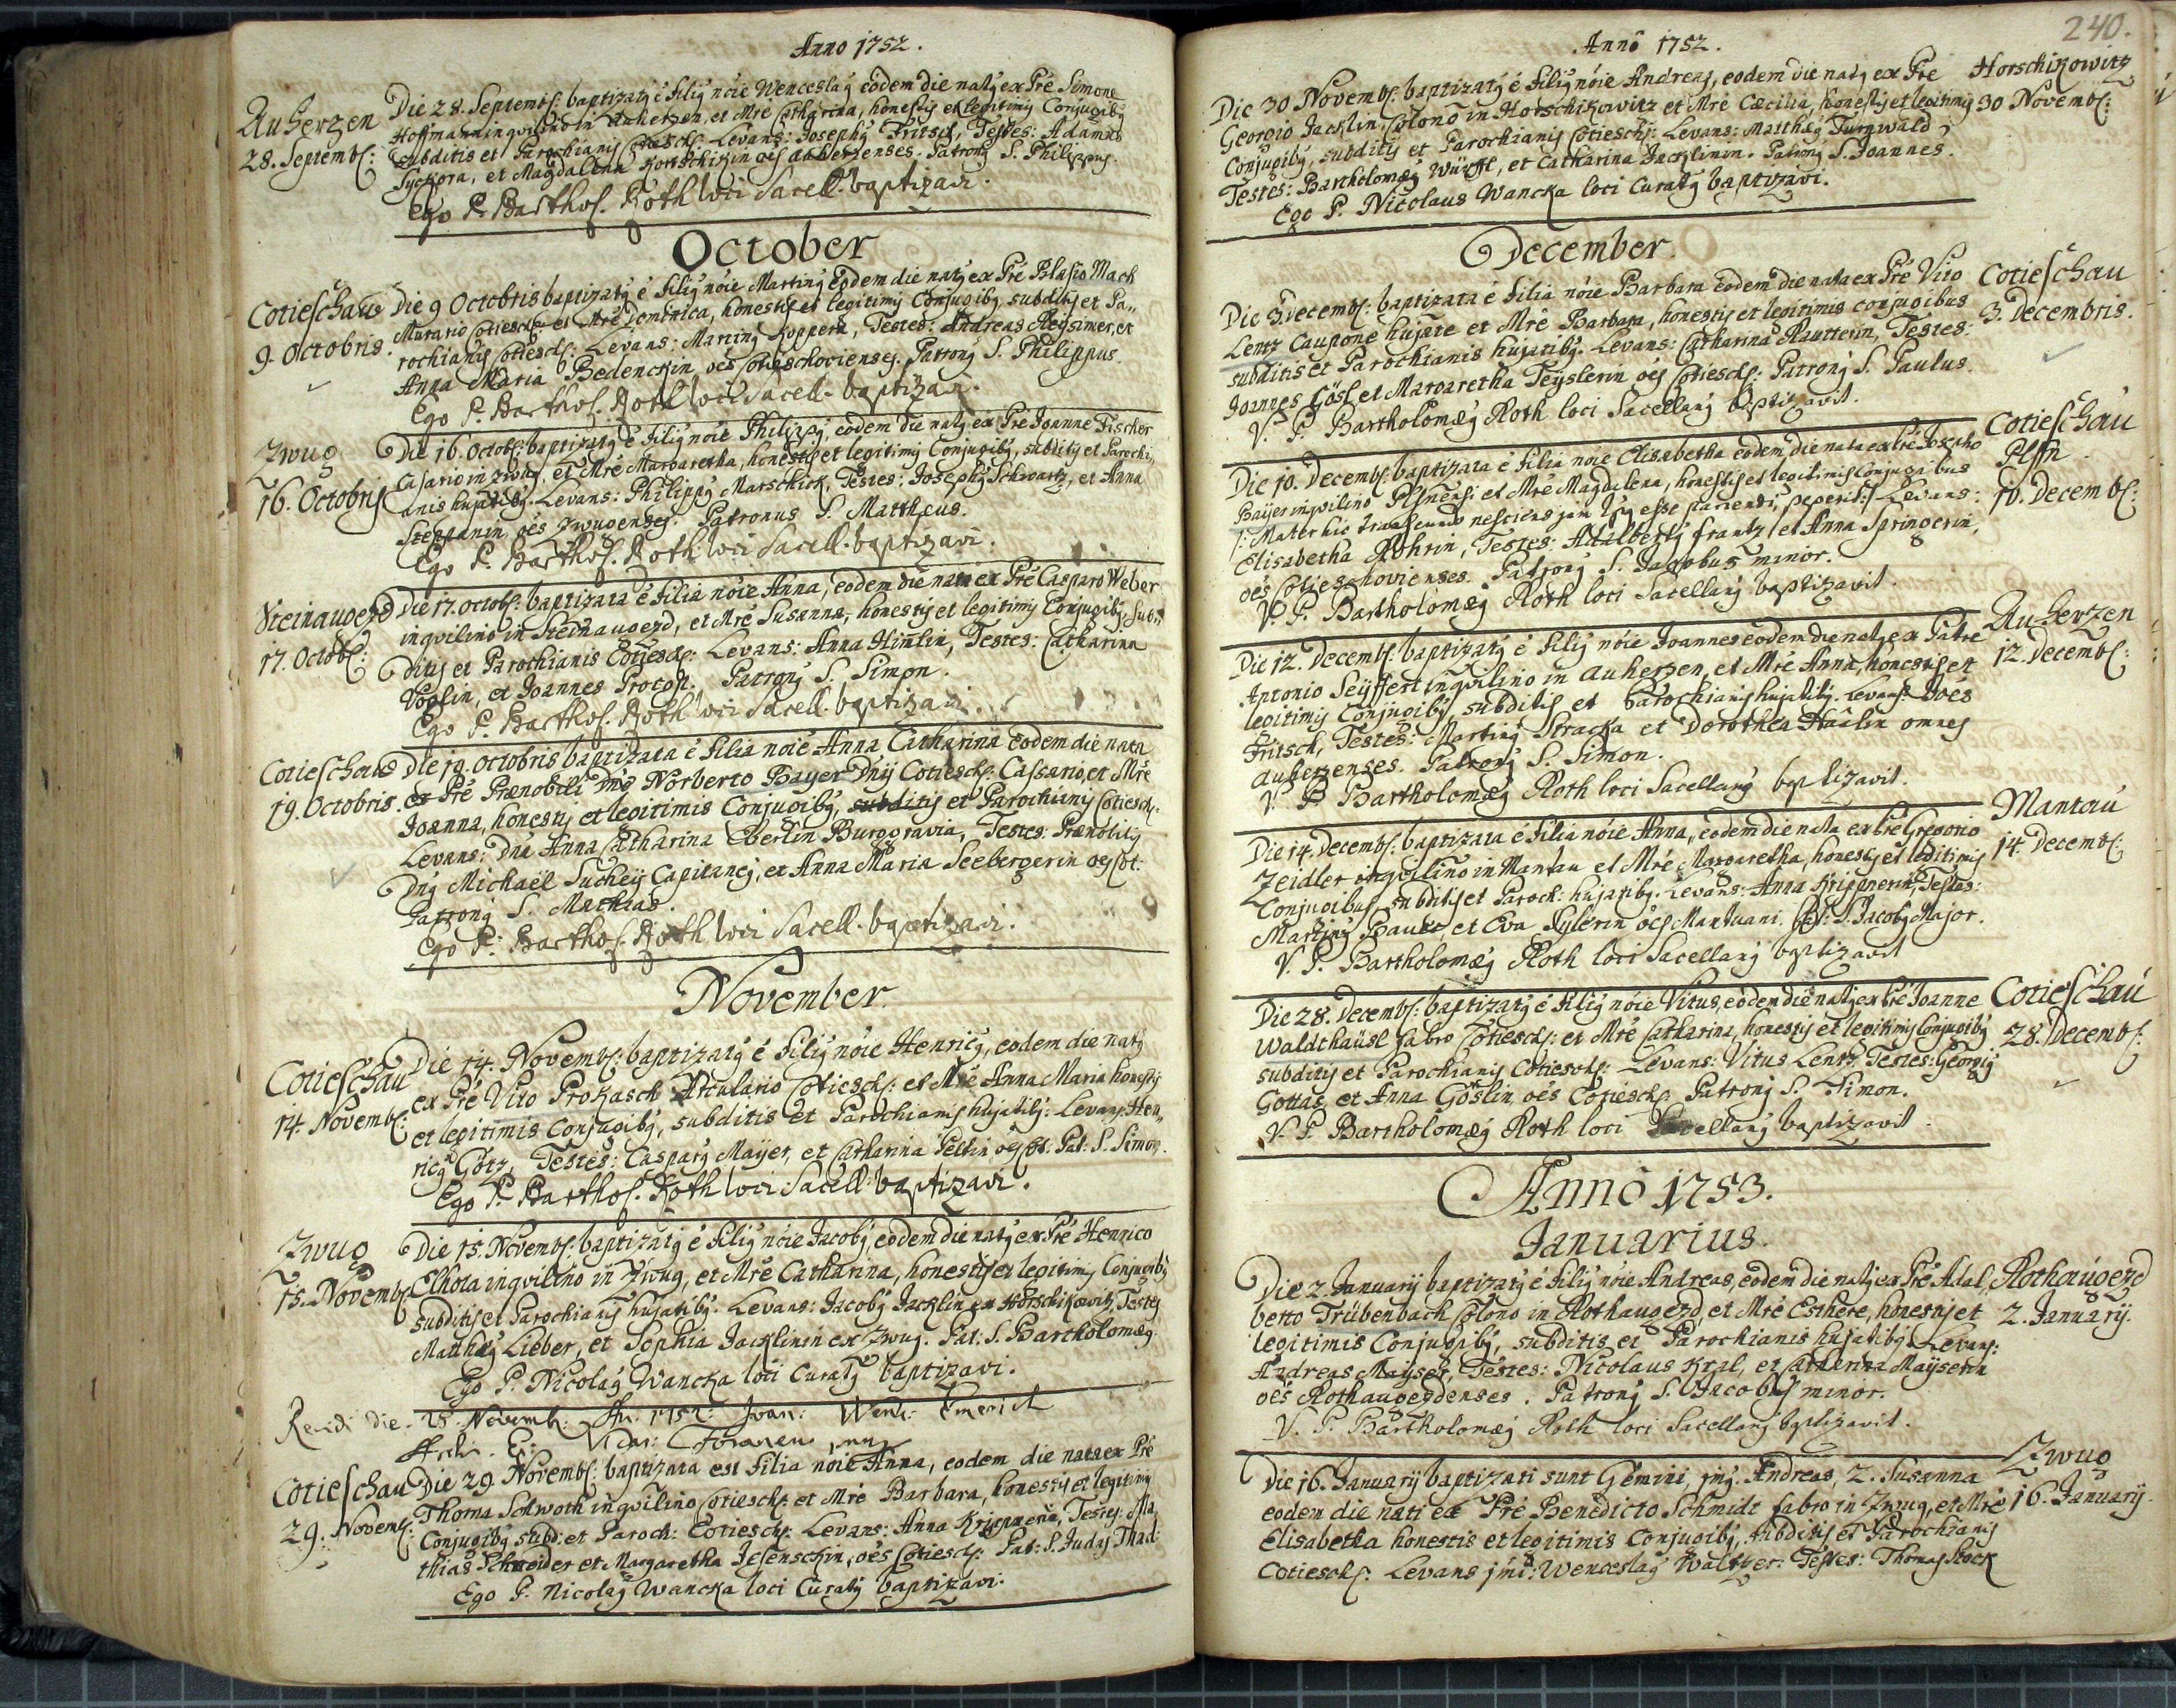 Anno 1752.
Auherzen
28. Septembr:
Die 28. Septembr: baptizatq ē filiq nōie Wenceslaq eōdem die natq ex Prē Simone
Hoffmann inqvilino in Auherzen, et Mrē Catharina, honestis et legitimis Conjugibq
Subditis et Parochianis Cotiesch: Levans: Josephq Fritsch, Testes: Adamus
Syckora, et Magdalena Kortschikin oēs Auherzenses. Patronq S. Philippus.
Ego P. Barthol. Roth loci Sacell. baptizavi.
October
Cotieschau
9. Octobris.
Die 9 Octobris baptizatq ē filiq nōie Martinq eōdem die natq ex Prē Blasio Mach
Murario Cotiesch: et Mrē Dominica, honestis et legitimis Conjugibq subditis et Pa,,
rochianis Cotiesch: Levans: Martinq Koppera, Testes: Andreas Reysimer, et
Anna Maria Bedenckin oēs Cotieschovienses. Patronq S. Philippus.
Ego P. Barthol. Roth loci Sacell. baptizavi.
Zwug
16. Octobris
Die 16. Octobr: baptizatq ē filiq nōie Philippq, eodem die natq ex Prē Joanne Fischer
Casario in Zwug, et Mrē Margaretha, honestis et legitimis Conjugibq, subditis et Parochi,,
anis hujatibq. Levans: Philippq Marschick, Testes: Josephq Schwartz, et Anna
Steppanin, oēs Zwugenses. Patronus S. Matthæus.
Ego P. Barthol. Roth loci Sacell. baptizavi.
Steinaugezd
17. Octobr:
Die 17. octobr: baptizata ē filia nōie Anna, eodem die nata ex Prē Casparo Weber
inqvilino in Steinaugezd, et Mrē Susanna, honestis et legitimis Conjugibq, Sub,,
ditis et Parochianis Cotiesch: Levans: Anna Himlin, Testes: Catharina
Voglin, et Joannes Protop. Patronq S. Simon.
Ego P. Barthol. Roth loci Sacell. baptizavi.
Cotieschau
19. Octobris.
Die 19. octobris baptizata ē filia nōie Anna Catharina eodem die nata
ex Prē Prænobili Dnō Norberto Bayer Dnij Cotiesch: Cassario, et Mrē
Joanna, honestis et legitimis Conjugibq, subditis et Parochianis Cotiesch.
Levans: Dnā Anna Catharina Eberlin Burggravia, Testes: Prænobilis
Dnq Michaël Suchey Capitaneq, et Anna Maria Seebergerin oēs Cot.
Patronq S. Mathias.
Ego P. Barthol. Roth loci Sacell. baptizavi.
November
Cotieschau
14. Novembr:
Die 14. Novembr: baptizatq ē filiq nōie Henricq, eodem die natq
ex Prē Vito Prokasch Arculario Cotiesch: et Mrē Anna Maria honestis
et legitimis Conjugibq, subditis et Parochianis hujatibq: Levans Hen,,
ricq Götz, Testes: Casparq Mayer, et Catharina Peltin, oēs Cot. Pat: S. Simon.
Ego P. Barthol. Roth loci Sacell. baptizavi.
Zwug
15. Novembr
Die 15. Novembr: baptizatq ē filiq nōie Jacobq, eodem die natq ex Prē Henrico
Elhota inqvilino in Zwug, et Mrē Catharina, honestis et legitimis Conjugibq
subditis et Parochianis hujatibq. Levans: Jacobq Jacklin ex Horschikowitz, Testes
Matthæq Lieber, et Sophia Jacklinin ex Zwug. Pat: S. Bartholomæq.
Ego P. Nicolaq Wancka loci Curatq baptizavi.
die. 28. Novemb: An. 1752: Joan: Wenc: Emerich
Cotieschau
29. Novemb:
Die 29. Novembr: baptizata est filia nōie Anna, eodem die nata ex Prē
Thoma Schwoth inqvilino Cotiesch: et Mrē Barbara, honestis et legitimis
Conjugibq subd: et Paroch: Cotiesch: Levans: Anna Krippnerin, Testes: Ma,,
thias Schneider et Margaretha Jesenschin, oēs Cotiesch: Pat: S. Judas Thad:
Ego P. Nicolaq Wancka loci Curatq baptizavi.
240.
Anno 1752.
Horschikowitz
30 Novembr:
Die 30 Novembr: baptizatq ē filiq nōie Andreas, eodem die natq ex Pre
Georgio Jacklin Colono in Horschikowitz et Mrē Cæcilia, honestis et legitimis
Conjugibq, subditis et Parochianis Cotiesch: Levans: Matthæq Turnwald
Testes: Bartholomæq Würffl, et Catharina Jacklinin. Patronq S. Joannes.
Ego P. Nicolaus Wancka loci Curatq baptizavi.
December.
Cotieschau
3. Decembris.
Die 3. Decembr: baptizata ē filia nōie Barbara eodem die nata ex Prē Vito
Lentz Caupone hujate et Mrē Barbara, honestis et legitimis conjugibus
subditis et Parochianis hujatibq. Levans: Catharina Rautterin, Testes:
Joannes Gösl, et Margaretha Teyslerin oēs Cotiesch: Patronq S. Paulus.
V. P. Bartholomæq Roth loci Sacellanq baptizavit.
Cotieschau
Plsn
10. Decembr:
Die 10. Decembr: baptizata ē filia nōie Elisabetha eodem die nata ex Prē Josepho
Bayer inqvilino Plsnensi et Mrē Magdalena, honestis et legitimis Conjugibus
/: Mater hic transeundo nesciens jam Tps esse pariendi, peperit :/ Levans:
Elisabetha Rohrin, Testes: Adalbertq Frantz, et Anna Springerin,
oēs Cotieschovienses. Patronq S. Jacobus minor.
V. P. Bartholomæq Roth loci Sacellanq baptizavit.
Auherzen
12. Decembr:
Die 12. Decembr: baptizatq ē filiq nōie Joannes eodem die natq ex Patre
Antonio Seyffert inqvilino in Auherzen, et Mrē Anna, honestis et
legitimis Conjugibq subditis et Parochianis hujatibq. Levans: Joēs
Fritsch, Testes: Martinq Stracka et Dorothea Haālin omnes
Auherzenses. Patronq S. Simon.
V. P. Bartholomæq Roth loci Sacellanq baptizavit.
Mantau
14. Decembr:
Die 14. Decembr: baptizata ē filia nōie Anna, eodem die nata ex Prē Gregorio
Zeidler inqvilino in Mantau et Mrē Margaretha, honestis et legitimis
Conjugibus, subditis et Paroch: hujatibq. Levans: Anna Krippnerin, Testes:
Martinq Bauer, et Eva Pylerin oēs Mantuani. Pat: S. Jacobq Major.
V. P. Bartholomæq Roth loci Sacellanq baptizavit
Cotieschau
28. Decembr:
Die 28. Decembr: baptizatq ē filiq nōie Vitus, eodem die natq ex Prē Joanne
Waldthäusl fabro Cotiesch: et Mrē Catharina, honestis et legitimis Conjugibq
subditis et Parochianis Cotiesch: Levans: Vitus Lentz, Testes: Georgiq
Gottas, et Anna Göslin, oēs Cotiesch: Patronq S. Simon.
V. P. Bartholomæq Roth loci Sacellanq baptizavit.
Anno 1753.
Januarius.
Rothaugezd
2. Januarij.
Die 2. Januarij baptizatq ē filiq nōie Andreas, eodem die natq ex Prē Adal,,
berto Trübenbach Colono in Rothaugezd, et Mrē Esthere, honestis et
legitimis Conjugibq, subditis et Parochianis hujatibq Levans:
Andreas Mayser, Testes: Nicolaus Kral, et Catharina Mayserin
oēs Rothaugezdenses. Patronq S. Jacobq minor.
V. P. Bartholomæq Roth loci Sacellanq baptizavit.
Zwug
16. Januarij.
Die 16. Januarij baptizati sunt Gemini, jmq. Andreas, 2. Susanna
eodem die nati ex Prē Benedicto Schmidt fabro in Zwug, et Mrē
Elisabetha honestis et legitimis Conjugibq, subditis et Parochianis
Cotiesch: Levans jmi: Wenceslaq Waltzer. Testes: Thomas Stock